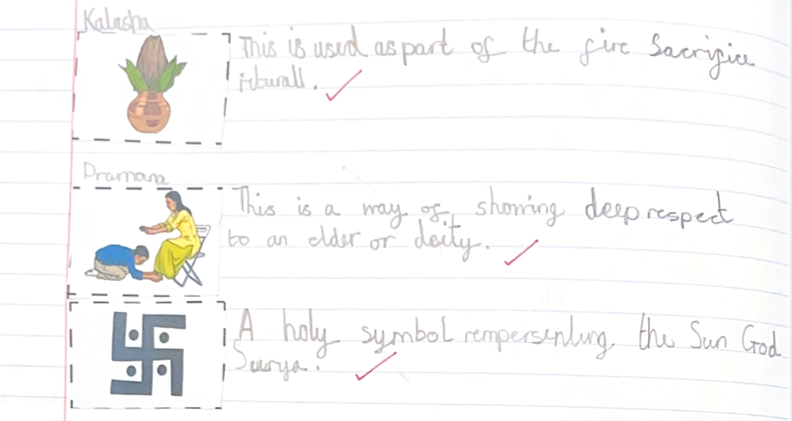 Kalasha
This is used as part of the fire Sacrifice
iturall.
Pramana
This is a way of showing deep respect
to an elder or deity.
A holy symbol rempersenting the Sun God
Surya.